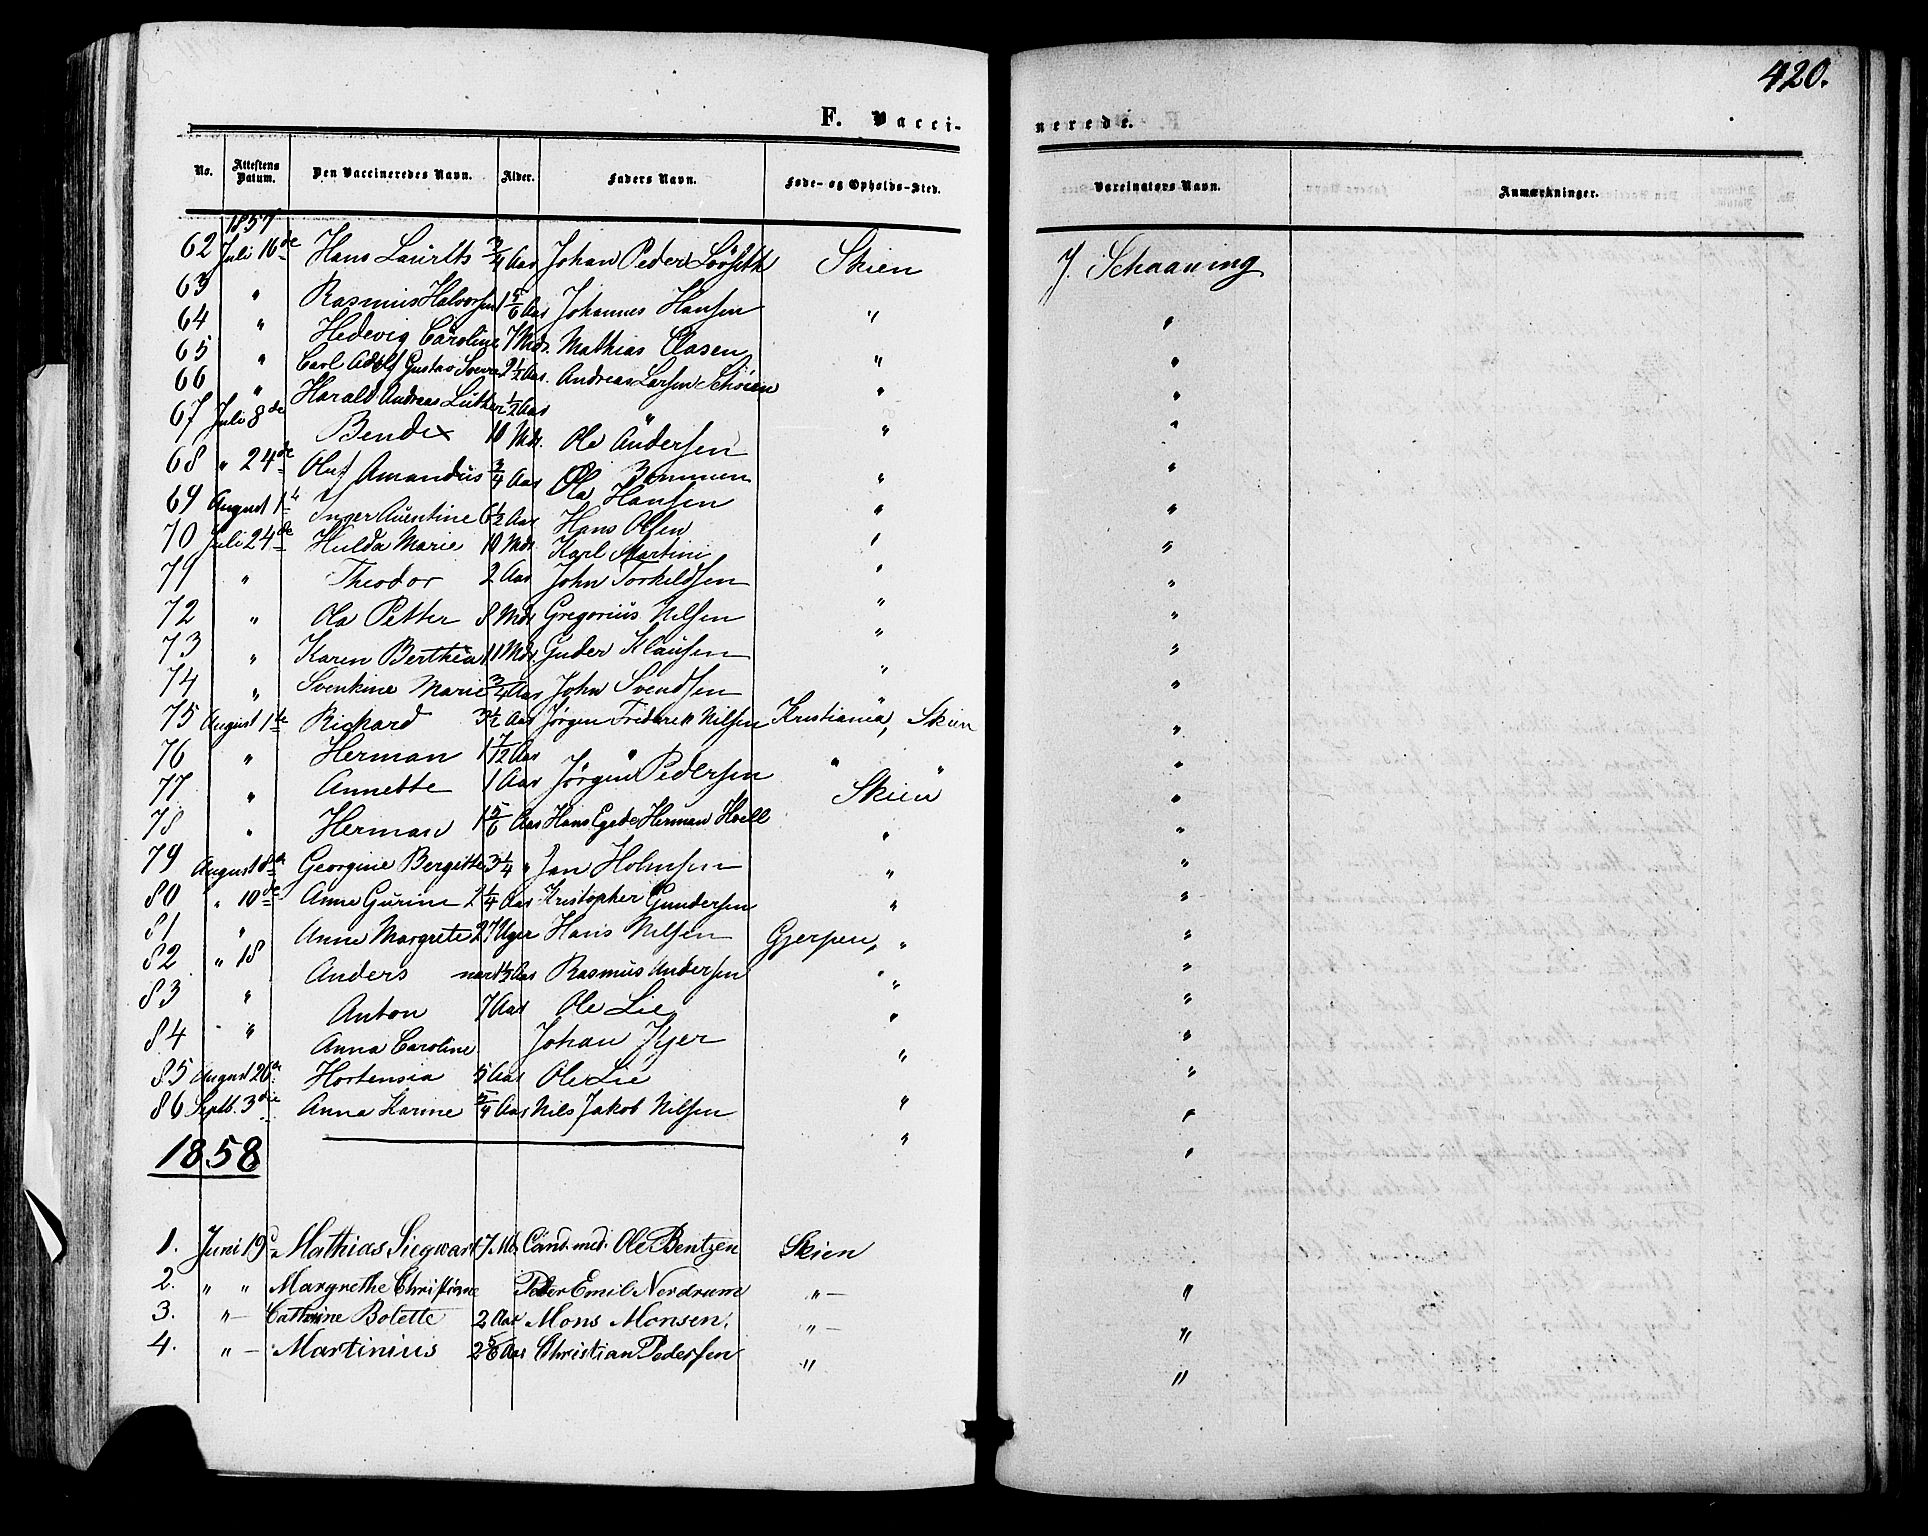 420.
F. Vacci-
nerede.
No. Attestens Datum. Den Vaccineredes Navn. Alder. Faders Navn. Føde- og Opholds-Sted. Vaccinators Navn. Anmærkninger.
1857
62 Juli 16de Hans Laurits 3/4 Aar Johan Peder Skien J. Schaaning
63 " Rasmus Halvorsen 1 5/6 Aar Johannes Hansen " "
64 " Hedevig Caroline 7 Mdr. Mathias Clasen " "
65 " Carl Adolf Gustav 2 1/2 Aar. Andreas Larsen Schøien " "
66 " Harald Andreas Luther 1/2 Aar " " "
67 Juli 8de Bendix 10 Mdr. Ole Andersen " "
68 " 24de Oluf Amandus 3/4 Aar Ole " "
69 August 1te Inger Aventine 6 1/2 Aar Hansen Hans Olsen " "
70 Juli 24de Hulda Marie 10 Mdr. Karl Martini " "
79 " Theodor 2 Aar John Torkildsen " "
72 " Ole Petter 8 Mdr. Gregorius Nilsen " "
73 " Karen Berthea 11 Mdr. Guder Klausen " "
74 " Svenkine Marie 3/4 Aar John Svendsen " "
75 August 1de Richard 3 1/2 Aar Jørgen Frederik Nilsen Kristiania, Skien "
76 " Herman 1 7/12 Aar " " " "
77 " Annette 1 Aar Jørgen Pedersen Skien "
78 " Herman 1 5/6 Aar Hans Egede Herman Hoell " "
79 August 8de Georgine Bergitte 3 1/4 " Jan Holmsen " "
80 " 10de Anne Gurine 2 1/4 Aar Kristopher Gundersen " "
81 " Anne Margrete 27 Uger Hans Nilsen Gjerpen, " "
82 " 18 Anders Aar Rasmus Andersen " " "
83 " Anton 7 Aar Ole Lie " "
84 " Anna Caroline Johan Kjer " "
85 August 26de Hortensia 5 Aar Ole Lie " "
86 Septb. 3die Anna Karine 5/4 Aar Nils Jakob Nilsen " "
1858
1. Juni 19de Mathias Siegwart 7. Md. Cand. med. Ole Bentzen Skien
2. " " Margrethe Christine Peder Emil Nordrum "— "
3. "— Cathrine Bolette 2 Aar Mons Monsen. "— "
4. "— Martinius 2 5/6 Aar Christian Pedersen " "